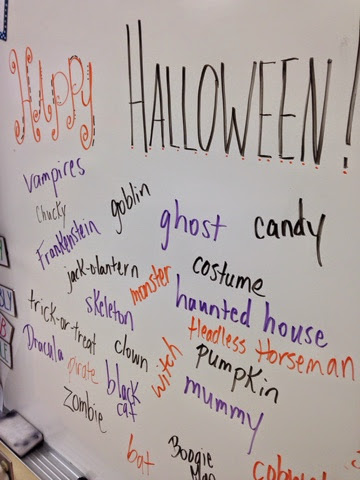 Happy Halloween!
vampires
goblin
Chucky
ghost
candy
Frankenstein
jack-o-lantern
monster
costume
skeleton
haunted house
trick-or-treat
Headless Horseman
clown
witch
pumpkin
Dracula
pirate
black
cat
mummy
zombie
bat
Boogie
Man